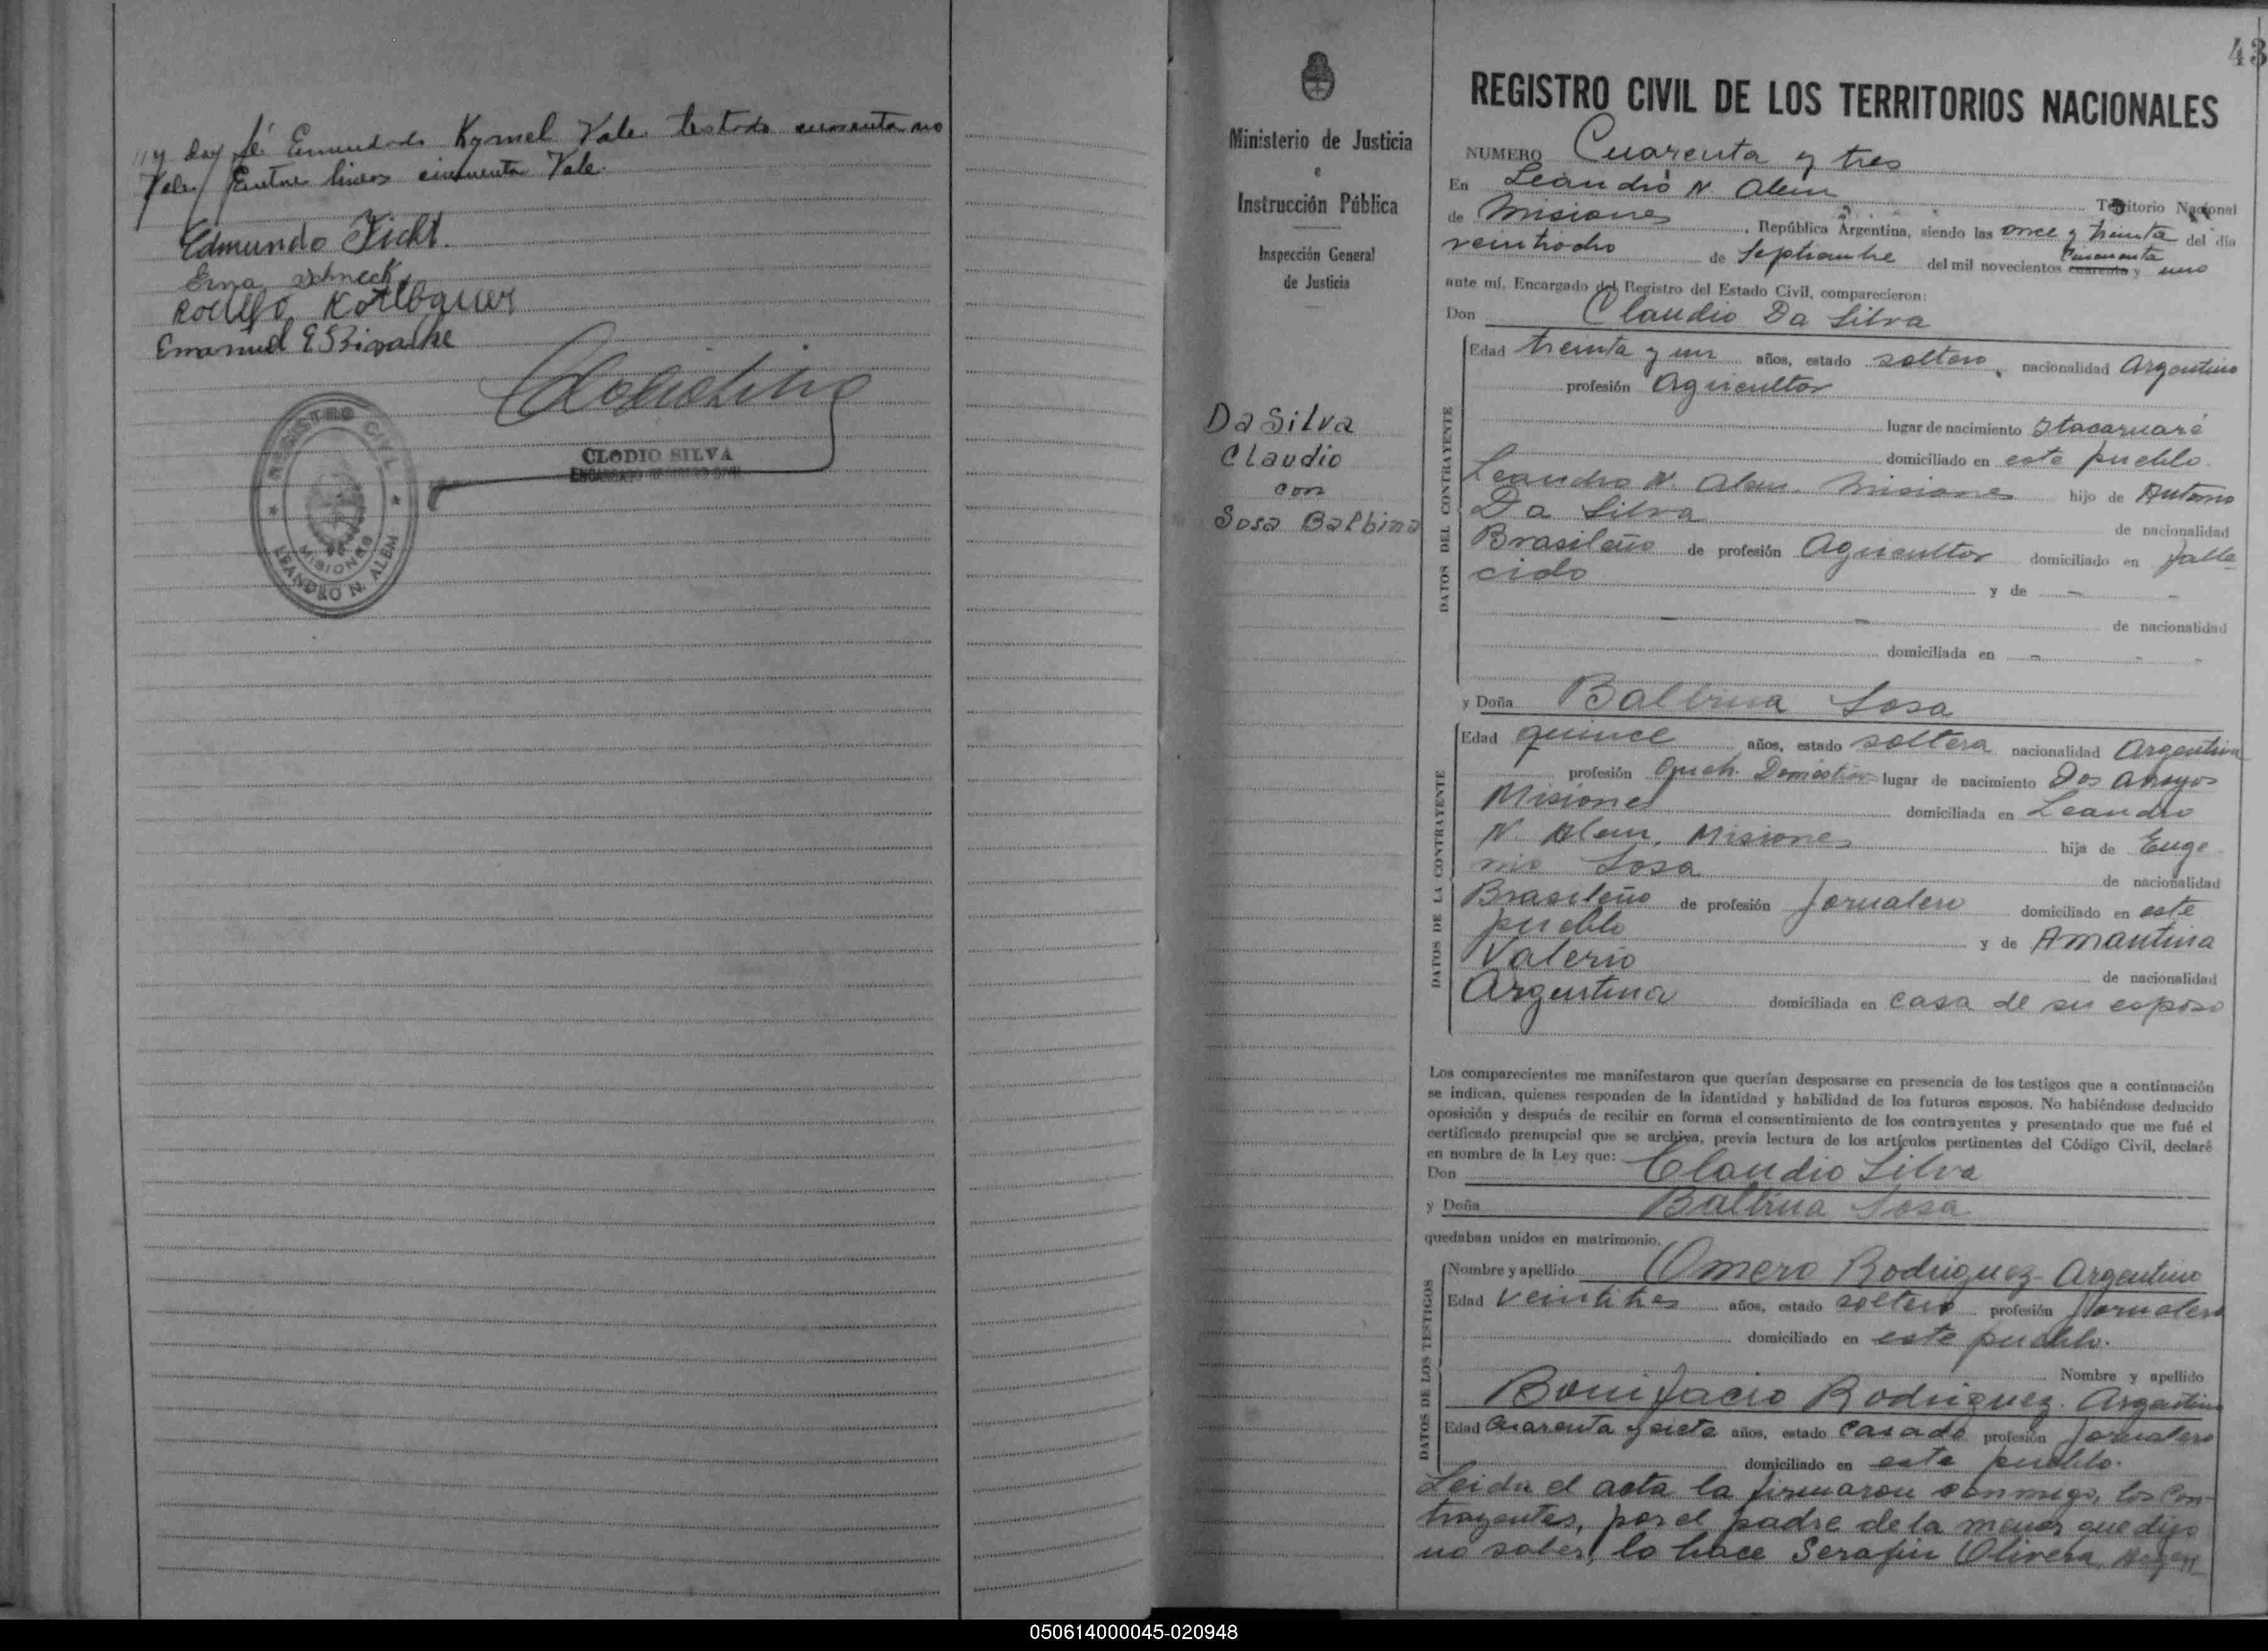 y doy fé Enmendado Kymel Vale. testado cuarenta no
Vale. Entre lineas cincuenta Vale.
Edmundo Ficht.
Erna Schneck
Rodolfo Kollbauer
Emanuel
CLODIO SILVA
ENCARGADO REGISTRO CIVIL
REGISTRO CIVIL
MISIONES
LEANDRO N. ALEM
43
Ministerio de Justicia
e
Instrucción Pública
Inspección General
de Justicia
Da Silva
Claudio
con
Sosa Balbina
REGISTRO CIVIL DE LOS TERRITORIOS NACIONALES
NUMERO Cuarenta y tres
En Leandro N. Alem Territorio Nacional
de Misiones, República Argentina, siendo las once y treinta del día
veintiocho de Septiembre del mil novecientos cuarenta cincuenta y uno
ante mí, Encargado del Registro del Estado Civil, comparecieron:
Don Claudio Da Silva
DATOS DEL CONTRAYENTE
Edad treinta y un años, estado soltero, nacionalidad Argentino
profesión Agricultor
lugar de nacimiento Itacaruaré
domiciliado en este pueblo.
Leandro N. Alem. Misiones hijo de Antonio
Da Silva de nacionalidad
Brasileño de profesión Agricultor domiciliado en falle
cido y de -
de nacionalidad
domiciliada en -
y Doña Balbina Sosa
DATOS DE LA CONTRAYENTE
Edad quince años, estado soltera nacionalidad Argentina
profesión Queh. Domésticos lugar de nacimiento Dos Arroyos
Misiones domiciliada en Leandro
N. Alem, Misiones hija de Euge
nio Sosa de nacionalidad
Brasileño de profesión Jornalero domiciliado en este
pueblo y de Amantina
Valerio de nacionalidad
Argentina domiciliada en casa de su esposo
Los comparecientes me manifestaron que querían desposarse en presencia de los testigos que a continuación
se indican, quienes responden de la identidad y habilidad de los futuros esposos. No habiéndose deducido
oposición y después de recibir en forma el consentimiento de los contrayentes y presentado que me fué el
certificado prenupcial que se archiva, previa lectura de los artículos pertinentes del Código Civil, declaré
en nombre de la Ley que:
Don Claudio Silva
y Doña Balbina Sosa
quedaban unidos en matrimonio.
DATOS DE LOS TESTIGOS
Nombre y apellido Omero Rodriguez- Argentino
Edad veintitres años, estado soltero profesión Jornalero
domiciliado en este pueblo.
Nombre y apellido
Bonifacio Rodriguez. Argentino
Edad Cuarenta y siete años, estado Casado profesión Jornalero
domiciliado en este pueblo.
Leida el acta la firmaron conmigo, los con-
trayentes, por el padre de la menor que dijo
no saber, lo hace Serafin Olivera, Argen
050614000045-020948